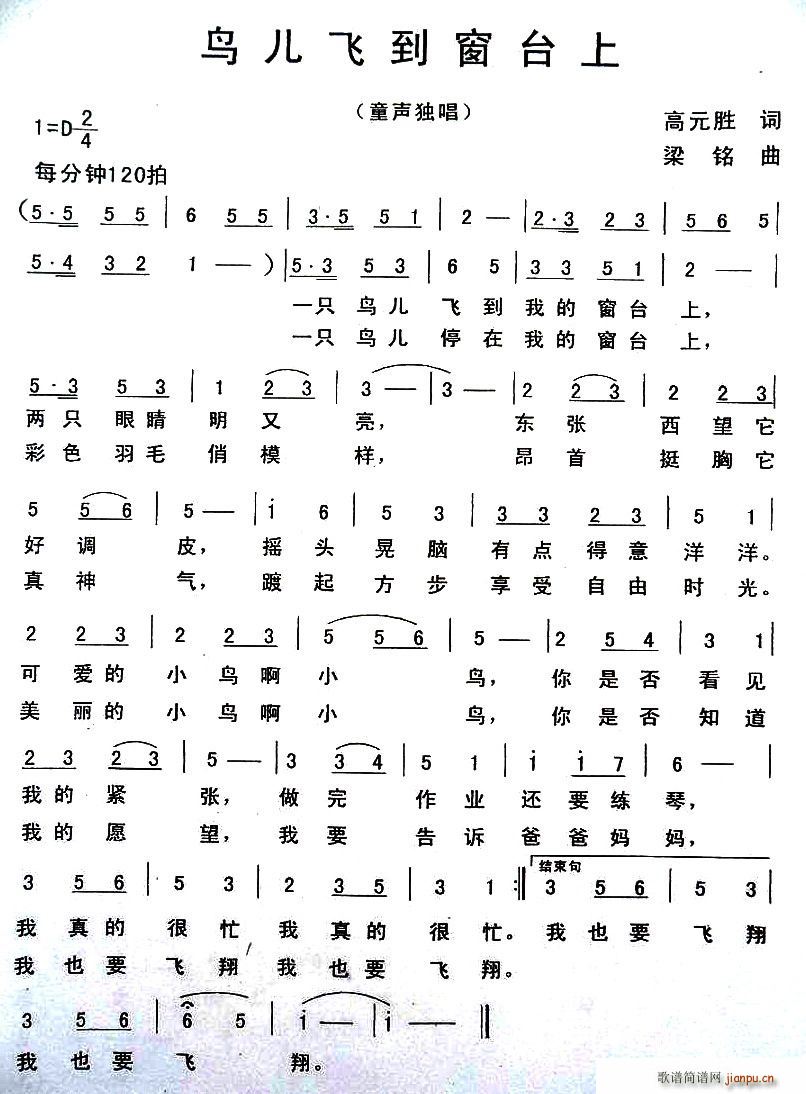 鸟儿飞到窗台上
（童声独唱）
1=D 2/4
高元胜 词
梁铭 曲
每分钟120拍
(5·5 5 5 | 6 5 5 | 3·5 5 1 | 2 — | 2·3 2 3 | 5 6 5 |
5·4 3 2 1 — ) | 5·3 5 5 | 6 5 | 3 3 5 1 | 2 — |
一只鸟儿 飞到我的窗台上，
一只鸟儿 停在我的窗台上，
5·3 5 3 | 1 2 3 | 3 — | 3 — | 2 2 3 | 2 2 3 |
两只眼睛明又亮， 东张西望它
彩色羽毛俏模样， 昂首挺胸它
5 5 6 | 5 — | i 6 | 5 3 | 3 3 2 3 | 5 1 |
好调皮， 摇头晃脑有点得意洋洋。
真神气， 踱起方步享受自由时光。
2 2 3 | 2 2 3 | 5 5 6 | 5 — | 2 5 4 | 3 1 |
可爱的小鸟啊小鸟， 你是否看见
美丽的小鸟啊小鸟， 你是否知道
2 3 2 3 | 5 — | 3 3 4 | 5 1 | i i 7 | 6 — |
我的紧张， 做完作业还要练琴，
我的愿望， 我要告诉爸爸妈妈，
结束句
3 5 6 | 5 3 | 2 3 5 | 3 1 :‖ 3 5 6 | 5 3 |
我真的很忙我真的很忙。我也要飞翔
我也要飞翔我也要飞翔。
3 5 6 | 6 5 | i — | i — ‖
我也要飞翔。
歌谱简谱网 jianpu.cn